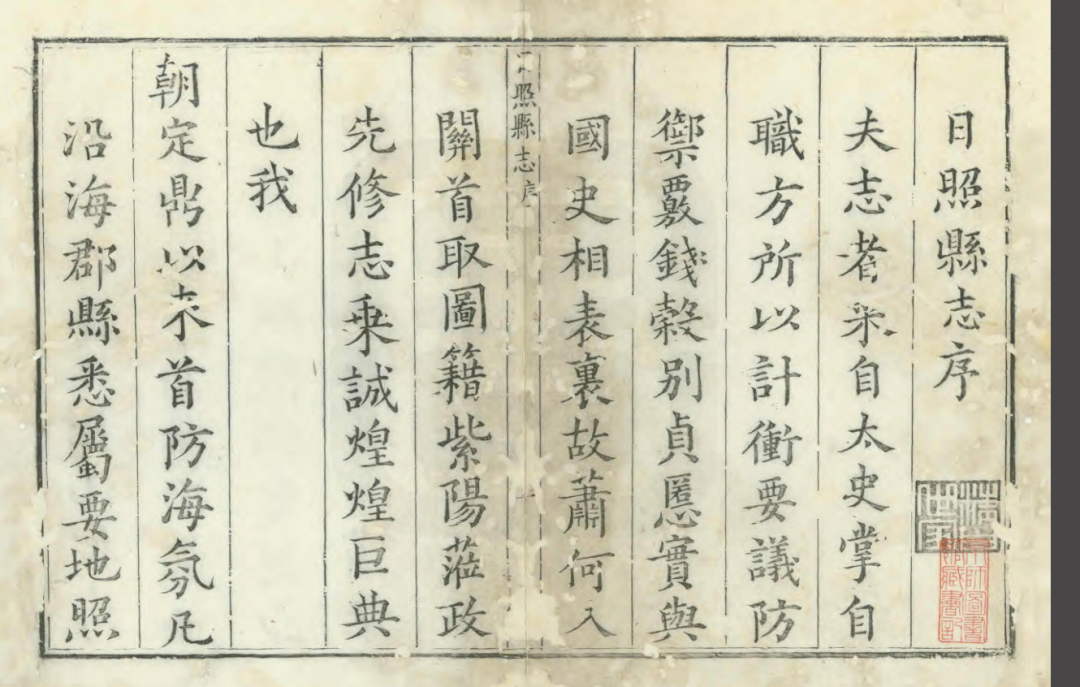 日照縣志序
夫志者采自太史掌自
職方所以計衝要議防
禦覈錢穀別貞慝實與
國史相表裏故蕭何入
照縣志 序
一
關首取圖籍紫陽蒞政
先修志乗誠煌煌巨典
也我
朝定鼎以来首防海氛凡
沿海郡縣悉屬要地照
京師圖書
館藏書記